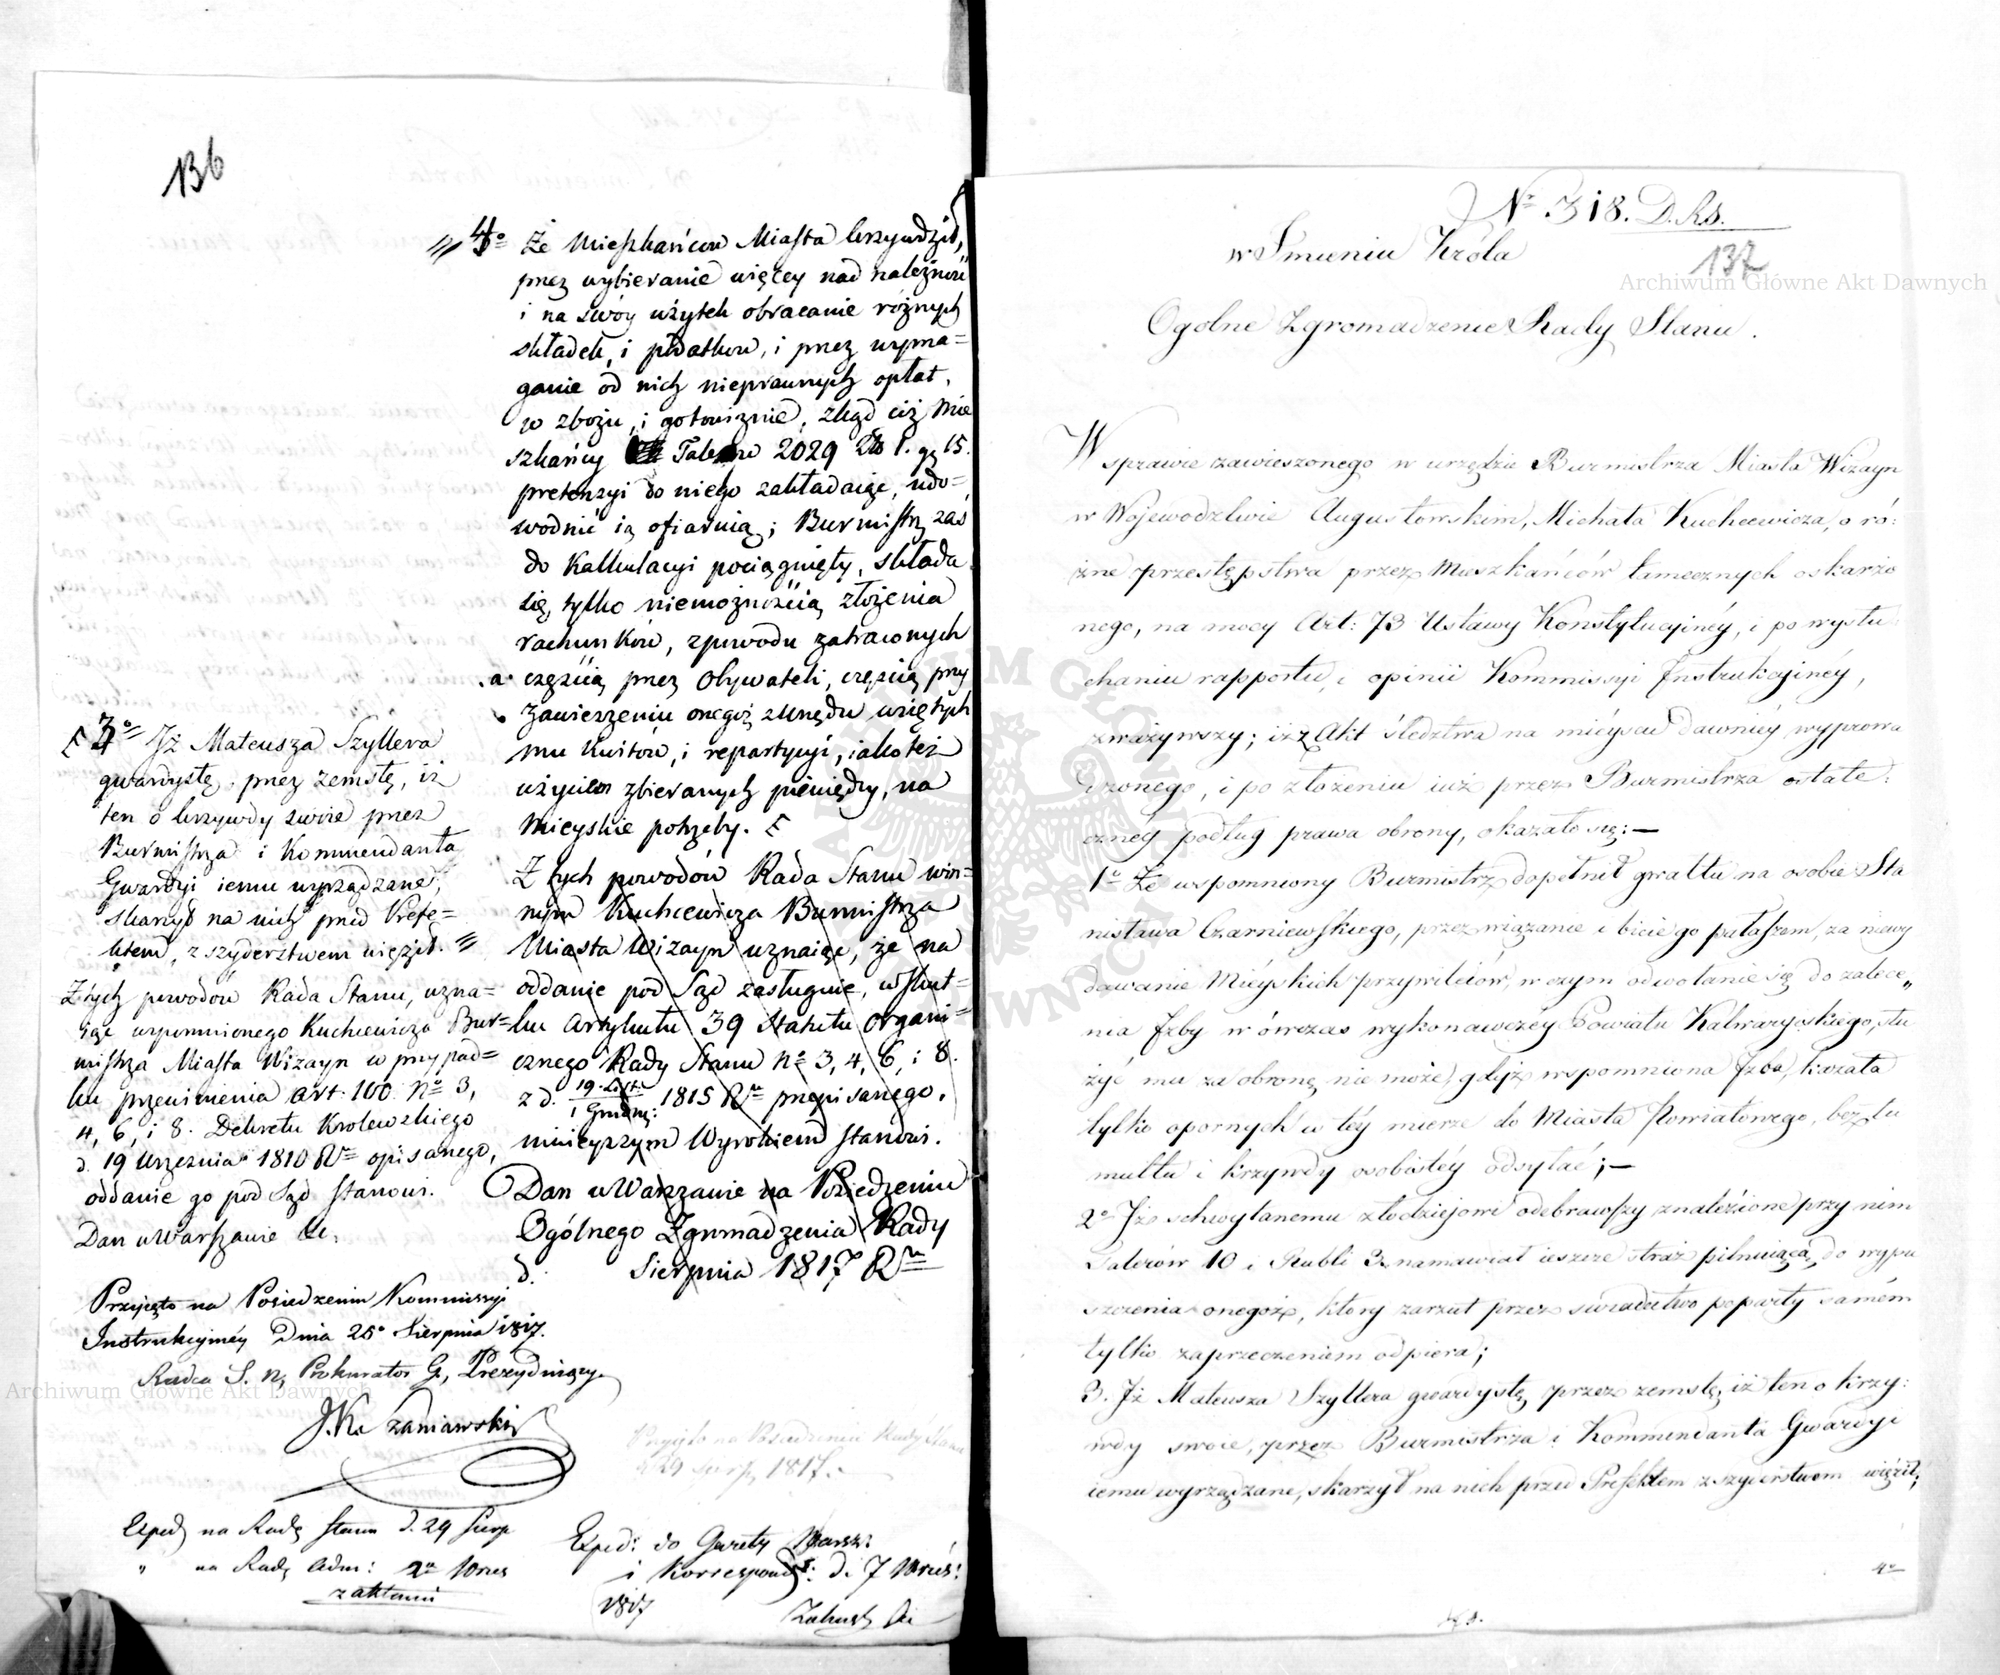 136
4o Że Mieszkańców Miasta krzywdził,
przez wybieranie więcey nad należność
i na swóy użytek obracanie różnych
składek, i podatków, i przez wyma=
ganie od nich nieprawnych opłat,
w zbożu, i gotowiznie, zkąd ciż Mie
szkańcy Talarów 2029 Zło 1. gr 15.
pretensyi do niego zakładaiąc, udo=
wodnić ią ofiaruią; Burmistrz zas
do Kalkulacyi pociągnięty, składa
się, tylko niemożnością złożenia
rachunków, z powodu zatraconych
częścią przez Obywateli, częścią przy
zawieszeniu onegoż z Urzędu wziętych
mu kwitów, i repartycyi, iakoteż
użyciem zbieranych pieniędzy, na
Mieyskie potrzeby.
Z tych powodów Rada Stanu win=
nym Kuchcewicza Burmistrza
Miasta Wizayn uznaiąc, że na
oddanie pod Sąd zasługuie, w skut=
ku Artykułu 39 Statutu Organi=
cznego Rady Stanu No 3, 4, 6, i 8.
z d. 19 List. / 1 Grudn: 1815 Ru przepisanego.
ninieyszym Wyrokiem stanowi.
Dan w Warszawie na Posiedzeniu
Ogólnego Zgromadzenia Rady
d. Sierpnia 1817 Ru
3o Iż Mateusza Szyllera
gwardystę, przez zemstę, iż
ten o krzywdy swoie przez
Burmistrza i Kommendanta
Gwardyi iemu wyrządzane,
skarżył na nich przed Prefe=
ktem, z szyderstwem więził.
Z tych powodów Rada Stanu, uzna=
iąc wspomnionego Kuchcewicza Bur=
mistrza Miasta Wizayn w przypad=
ku przewinienia Art. 100 No 3,
4, 6, i 8. Dekretu Królewskiego
d. 19 Września 1810 Ru opisanego,
oddanie go pod Sąd stanowi.
Dan w Warszawie &c.
Przyjęto na Posiedzeniu Kommissyi
Instrukcyinéy Dnia 25o Sierpnia 1817.
Radca S. N, Prokurator G, Prezyduiący
J. K. Szaniawski
Przyjęto na Posiedzeniu Rady Stanu
d 29 Sierp, 1817.
Exped na Radę Stanu d. 29 Sierp
" na Radę Adm: 2o Wrześ
z aktami
Exped: do Gazety Warsz:
i Korrespond: d. 7 Wrześ:
1817
No 318. D.R.S.
137
w Imieniu Króla
Ogolne Zgromadzenie Rady Stanu.
W sprawie zawieszonego w urzędzie Burmistrza Miasta Wizayn
w Wojewodztwie Augustowskim, Michała Kuchcewicza, o ró:
żne przestępstwa przez Mieszkańców tamecznych oskarżo
nego, na mocy Art: 73 Ustawy Konstytucyinéy, i po wysłu
chaniu rapportu, i opinii Kommissyi Instrukcyinéy,
zważywszy; iż z Akt śledztwa na mieyscu dawniéy wyprowa
dzonego, i po złożeniu iuż przez Burmistrza ostate:
cznéy podług prawa obrony, okazało się:—
1o Że wspomniony Burmistrz dopełnił gwałtu na osobie Sta
nisława Czarniewskiego, przez wiązanie i bicie go pałaszem, za niewy
dawanie Mieyskich przywileiów, w czym odwołanie się do zalece„
nia Izby wówczas wykonawczéy Powiatu Kalwaryiskiego, słu
żyć mu za obronę nie może, gdyż wspomniona Izba, kazała
tylko opornych w téy mierze do Miasta Powiatowego, bez tu
multu i krzywdy osobistéy odsyłać;—
2o Iż schwytanemu złodziejowi odebrawszy znalezione przy nim
Talerów 10 i Rubli 3, namawiał ieszcze straż pilnuiącą, do wypu
szczenia onegoż, który zarzut przez świadectwo poparty samém
tylko zaprzeczeniem odpiera;
3. Iż Mateusza Szyllera gwardystę, przez zemstę, iż ten o krzy:
wdy swoie, przez Burmistrza i Kommendanta Gwardyi
iemu wyrządzane, skarżył na nich przed Prefektem z szyderstwem więził;
4o
Archiwum Główne Akt Dawnych
Archiwum Główne Akt Dawnych